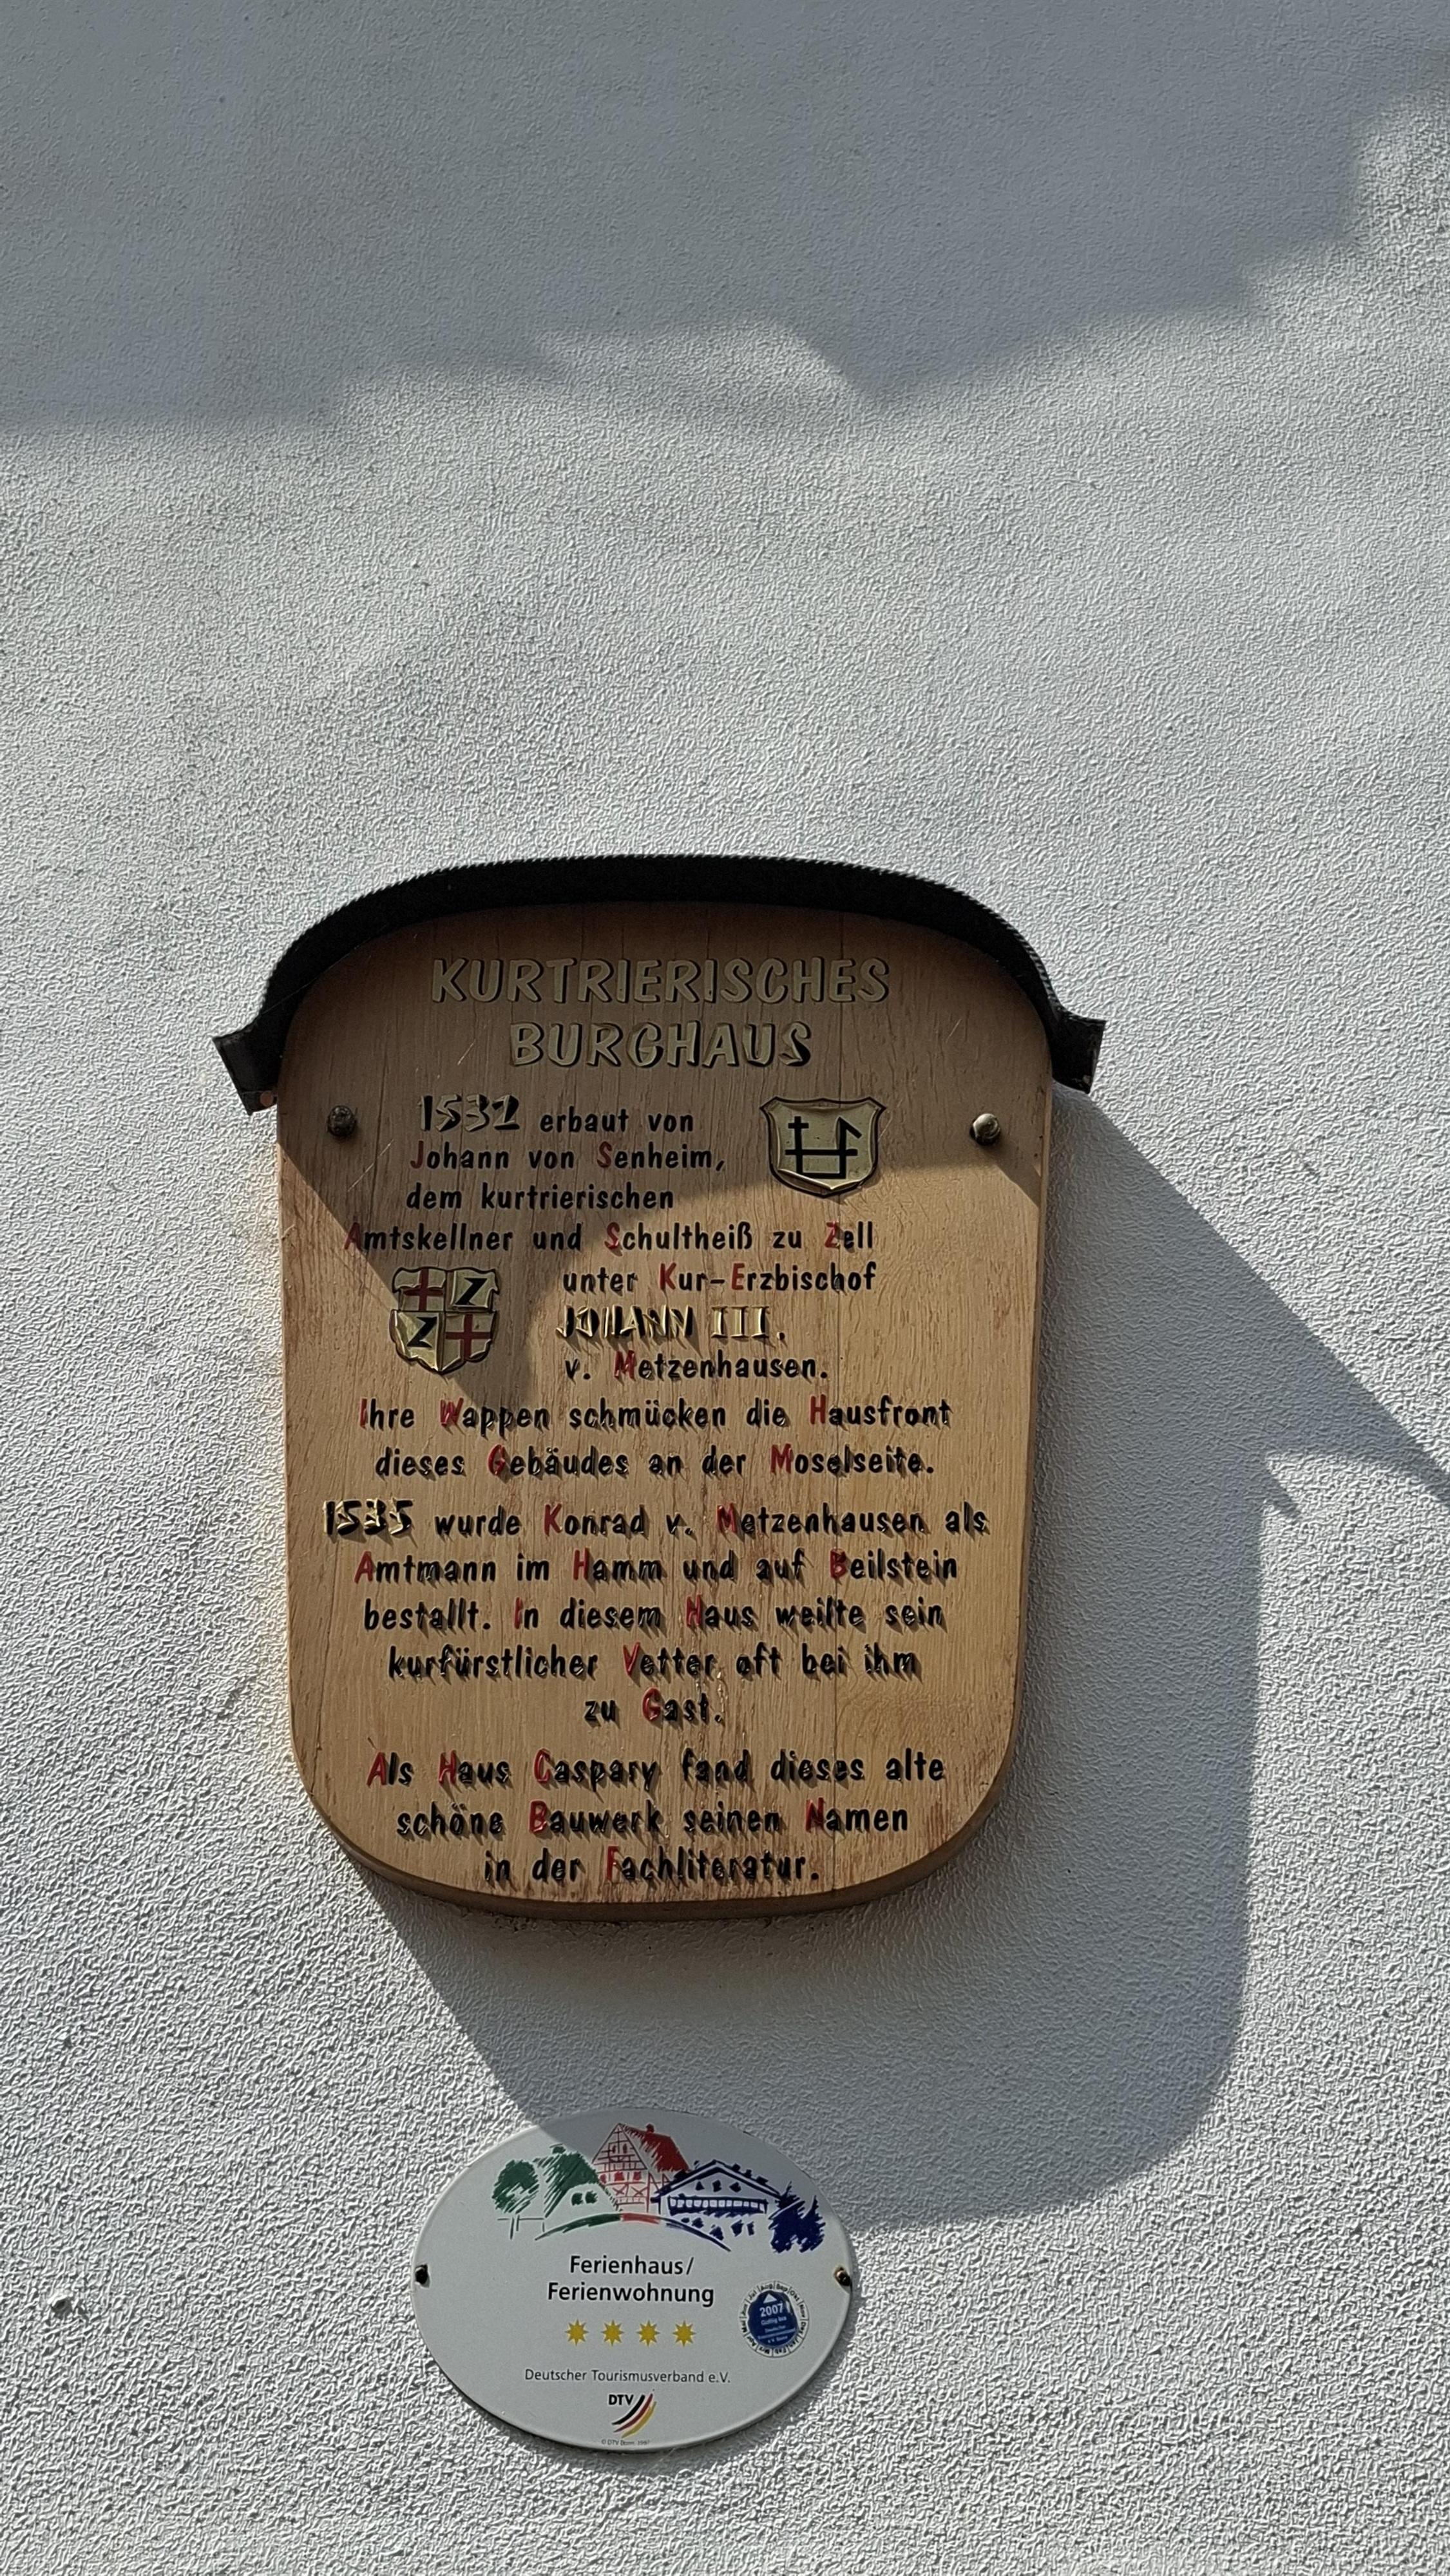 KURTRIERISCHES
BURGHAUS
1532 erbaut von
Johann von Senheim,
dem kurtrierischen
Amtskellner und Schultheiß zu Zell
unter Kur-Erzbischof
JOHANN III.
v. Metzenhausen.
Ihre Wappen schmücken die Hausfront
dieses Gebäudes an der Moselseite.
1535 wurde Konrad v. Metzenhausen als
Amtmann im Hamm und auf Beilstein
bestallt. In diesem Haus weilte sein
kurfürstlicher Vetter oft bei ihm
zu Gast.
Als Haus Caspary fand dieses alte
schöne Bauwerk seinen Namen
in der Fachliteratur.
Ferienhaus/
Ferienwohnung
2007
Deutscher Tourismusverband e.V.
DTV